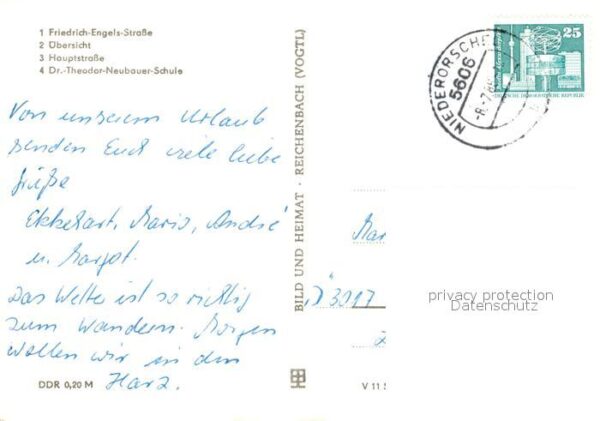 1 Friedrich-Engels-Straße
2 Übersicht
3 Hauptstraße
4 Dr.-Theodor-Neubauer-Schule
Von unserem Urlaub
senden Euch viele liebe
Grüße
Ekkehart, Mario, André
u. Margot.
Das Wetter ist so richtig
zum Wandern. Morgen
wollen wir in den
Harz.
DDR 0,20 M
BILD UND HEIMAT · REICHENBACH (VOGTL)
V 11
NIEDERORSCHE
5606
25
DEUTSCHE DEMOKRATISCHE REPUBLIK
Mar
D 3017
privacy protection
Datenschutz